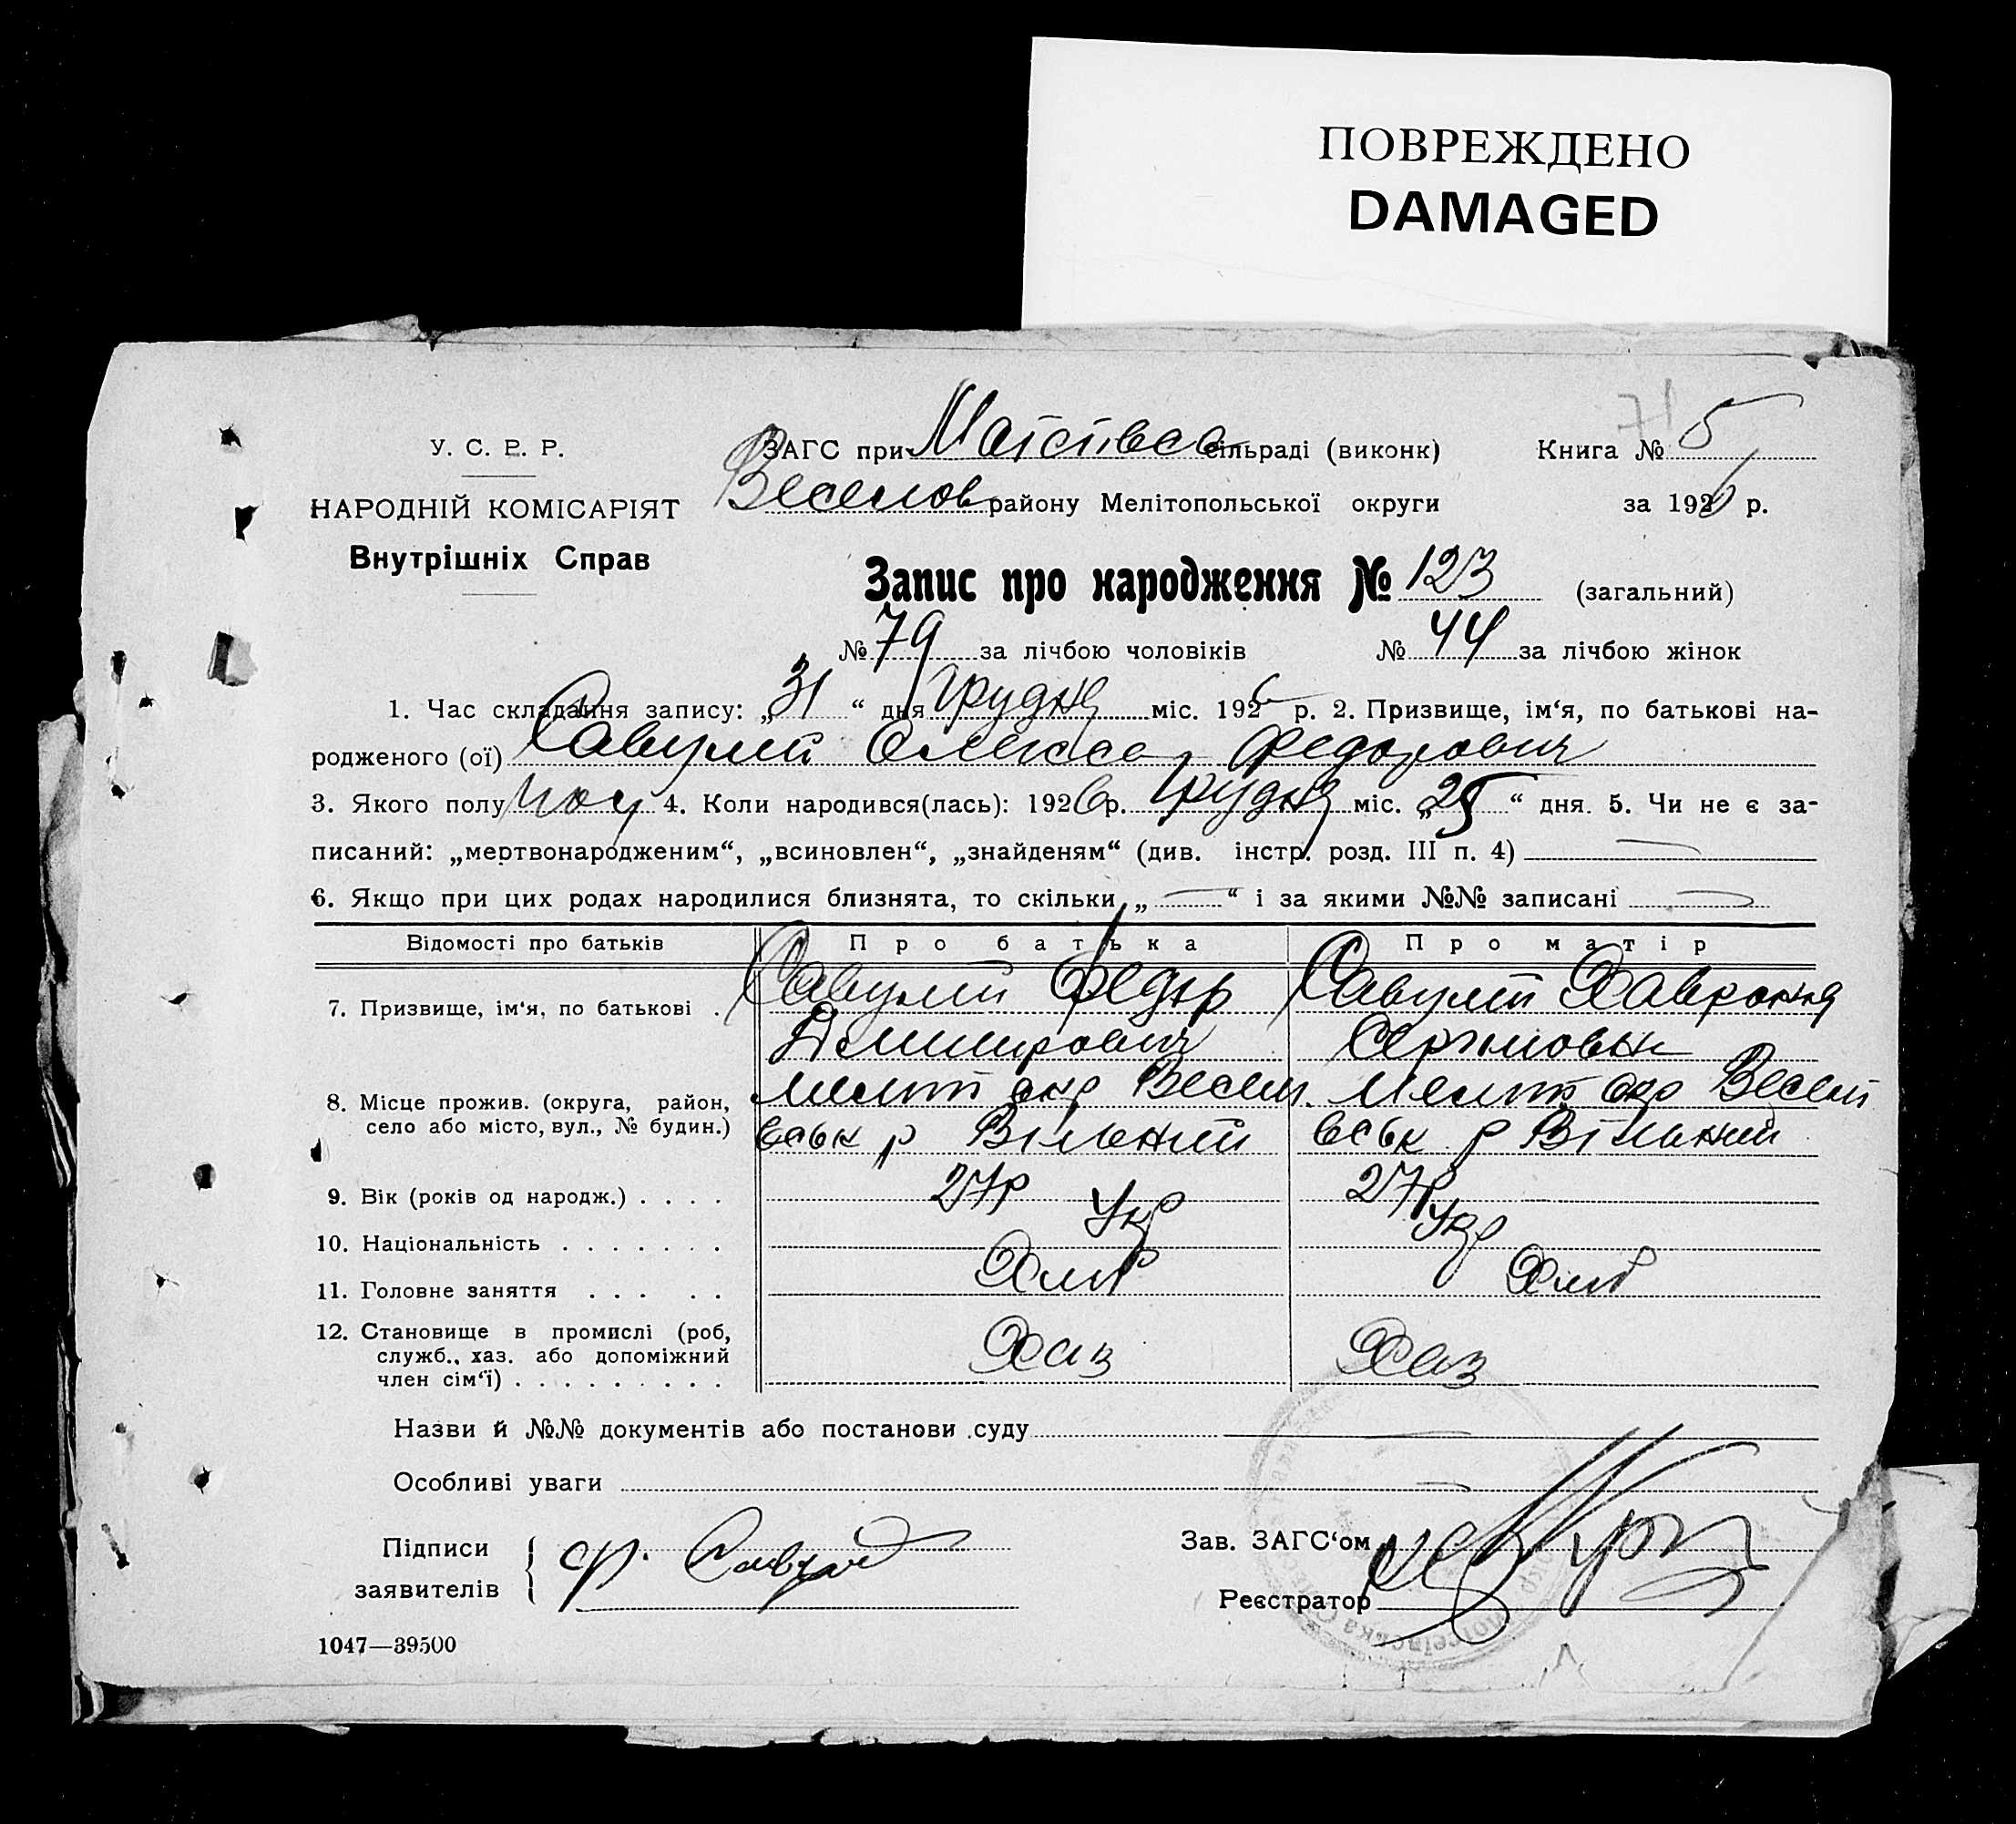 ПОВРЕЖДЕНО
DAMAGED
71
У. С. Р. Р.
ЗАГС при сільраді (виконк) Книга № 5
НАРОДНІЙ КОМІСАРІЯТ
Веселов району Мелітопольської округи за 1926 р.
Внутрішніх Справ
Запис про народження № 123 (загальний)
№ 79 за лічбою чоловіків № 44 за лічбою жінок
1. Час складання запису: „31“ дня Грудня міс. 1926 р. 2. Призвище, ім'я, по батькові на-
родженого (ої) Савулий Олекса Федорович
3. Якого полу чол 4. Коли народився(лась): 1926 р. Грудня міс. „25“ дня. 5. Чи не є за-
писаний: „мертвонародженим“, „всиновлен“, „знайденям“ (див. інстр. розд. III п. 4) —
6. Якщо при цих родах народилися близнята, то скільки „—“ і за якими №№ записані —
Відомості про батьків Про батька Про матір
7. Призвище, ім'я, по батькові . Савулий Федір Савулий Хавронія
Демирович
8. Місце прожив. (округа, район, Меліт окр Весел. Меліт окр Весел
село або місто, вул., № будин.) овськ р Вільний овськ р Вільний
9. Вік (років од народж.) . . . . 27р 27р
10. Національність . . . . . . . Укр Укр
11. Головне заняття . . . . . Хліб Хліб
12. Становище в промислі (роб, служб., хаз. або допоміжний член сім'ї) . . . . . . . . . Хаз Хаз
Назви й №№ документів або постанови суду —
Особливі уваги —
Підписи
заявителів Ф.
Зав. ЗАГС'ом
Реєстратор
1047—39500